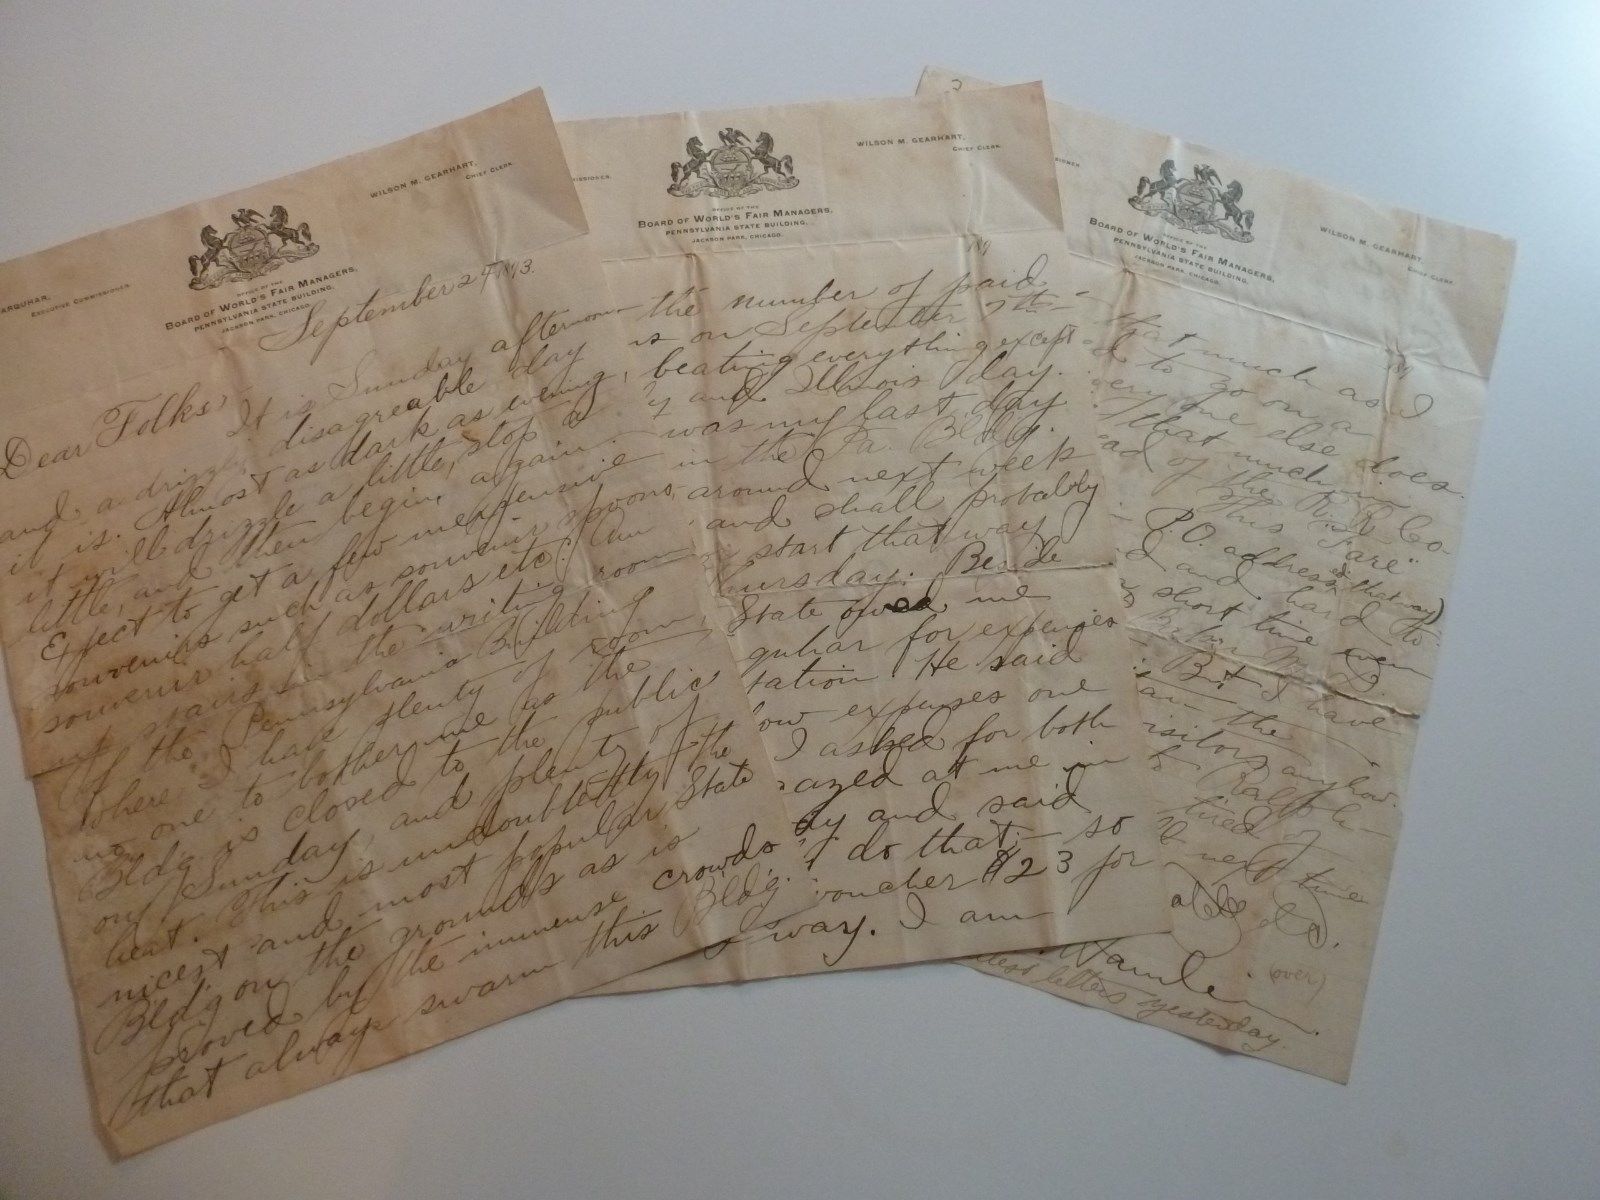 ARQUHAR,
EXECUTIVE COMMISSIONER.
WILSON M. GEARHART,
CHIEF CLERK.
OFFICE OF THE
BOARD OF WORLD'S FAIR MANAGERS,
PENNSYLVANIA STATE BUILDING,
JACKSON PARK, CHICAGO.
September 24 1893.
Dear Folks:
It is Sunday afternoon
and a drizzly disagreable day
it is. Almost as dark as evening,
it will drizzle a little, stop a
little, and then begin again.
Expect to get a few inexpensive
souvenirs such as souvenir spoons,
souvenir half dollars etc. Am
up stairs in the writing room
of the Pennsylvania Building
where I have plenty of room,
no one to bother me as the
Bldg. is closed to the public
on Sunday, and plenty of
heat. This is undoubtedly the
nicest and most popular State
Bldg on the grounds as is
proved by the immense crowds
that always swarm this Bldg.
MISSIONER.
WILSON M. GEARHART,
CHIEF CLERK.
OFFICE OF THE
BOARD OF WORLD'S FAIR MANAGERS,
PENNSYLVANIA STATE BUILDING,
JACKSON PARK, CHICAGO.
189
the number of paid
is on September 7th
beating everything except
y and Illinois day.
was my last day
in the Pa. Bldg.
around next week
and shall probably
start that way
hursday. Beside
State owed me
quhar for expenses
tation He said
ow expenses one
I asked for both
azed at me in
ay and said
do that; so
voucher $23 for
way. I am
2
SIONER.
WILSON M. GEARHART,
CHIEF CLERK.
OFFICE OF THE
BOARD OF WORLD'S FAIR MANAGERS,
PENNSYLVANIA STATE BUILDING,
JACKSON PARK, CHICAGO.
189
that much as I
d to go on a
ery one else does.
that much in
ad of the R. R. Co.
This "Fare"
P.O. address ed that way)
I and hard to
short time even
But I have
am the
isitors anyhow.
to Ralph
tired of
next time
etc.
(over)
Hamlin
letters yesterday.